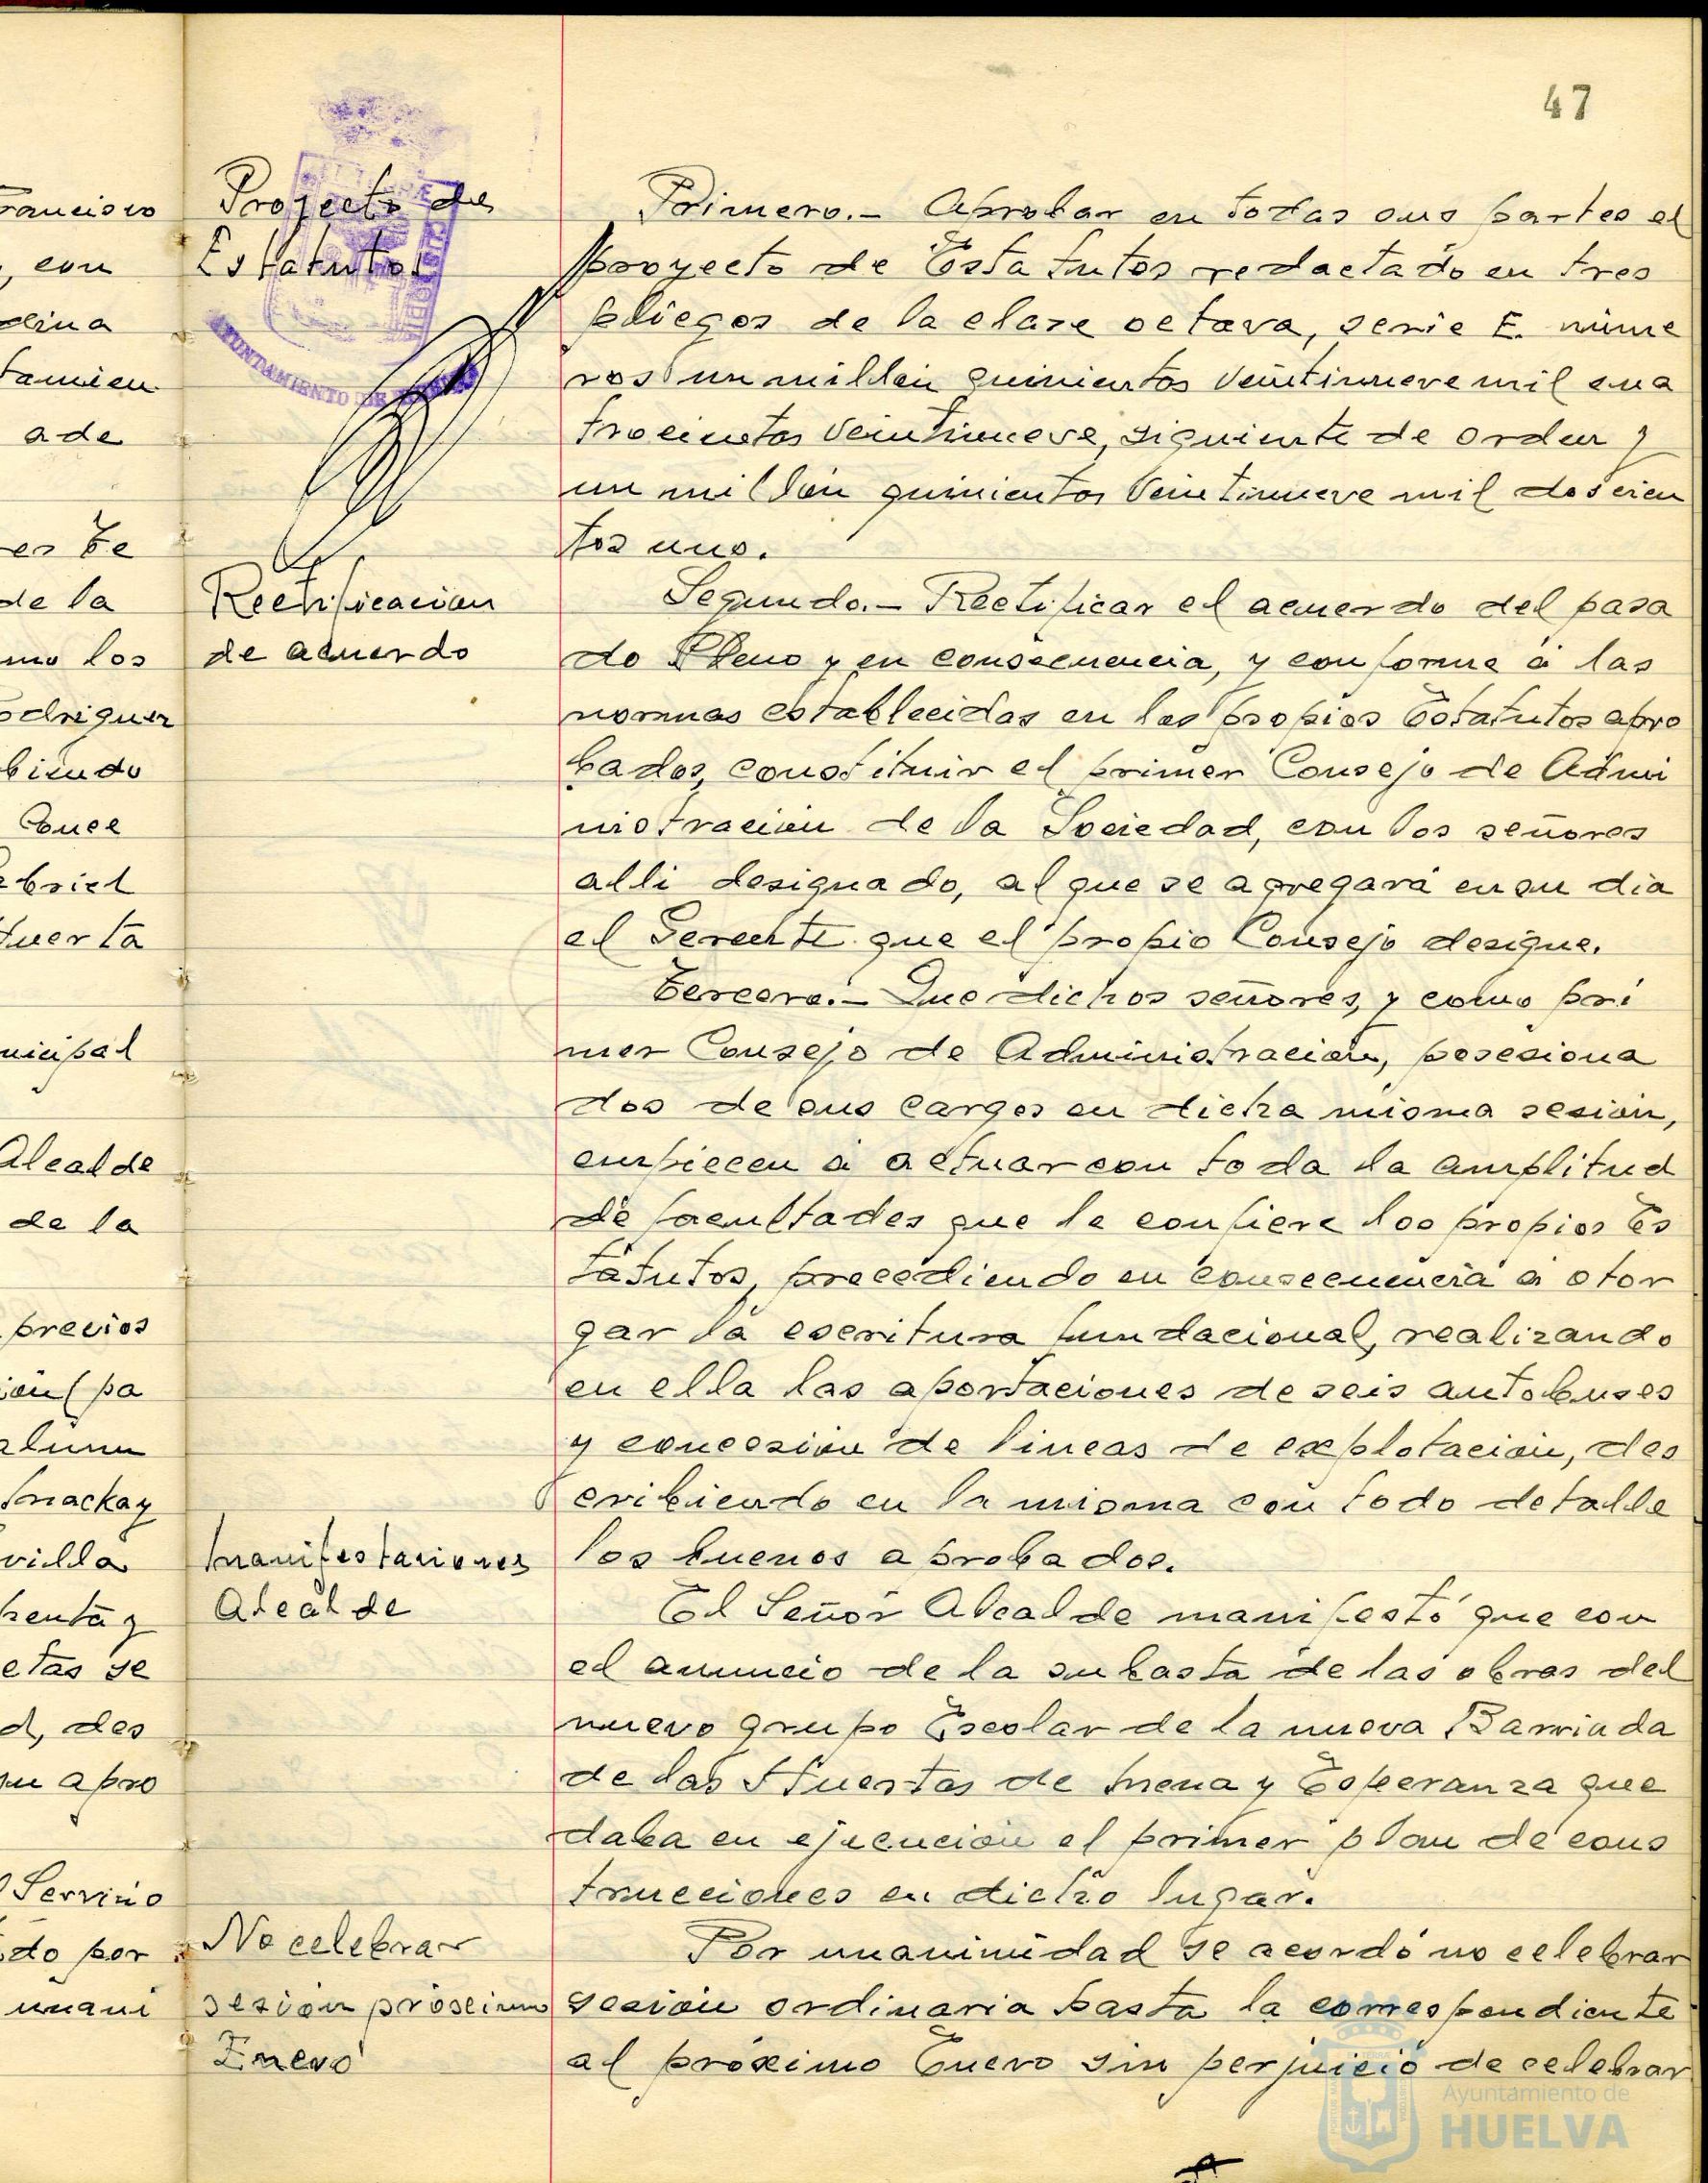 47
Proyecto de
Estatutos
Primero.- Aprobar en todas sus partes el
proyecto de Estatutos redactado en tres
pliegos de la clase octava, serie E. núme
ros un millón quinientos veintinueve mil cua
trocientos veintinueve, siguiente de orden y
un millón quinientos veintinueve mil doscien
tos uno.
Rectificación
de acuerdo
Segundo.- Rectificar el acuerdo del pasa
do Pleno y en consecuencia, y conforme á las
normas establecidas en los propios Estatutos apro
bados, constituir el primer Consejo de Admi
nistración de la Sociedad, con los señores
alli designado, al que se agregará en su dia
el Gerente que el propio Consejo designe.
Tercero.- Que dichos señores, y como pri
mer Consejo de Administración, posesiona
dos de sus cargos en dicha misma sesión,
empiecen á actuar con toda la amplitud
de facultades que le confiere los propios Es
tatutos, precediendo en consecuencia á otor
gar la escritura fundacional, realizando
en ella las aportaciones de seis autobuses
y concesión de lineas de explotación, des
cribiendo en la misma con todo detalle
los buenos aprobados.
Manifestaciones
Alcalde
El Señor Alcalde manifestó que con
el anuncio de la subasta de las obras del
nuevo grupo Escolar de la nueva Barriada
de las Huertas de Mena y Esperanza que
daba en ejecución el primer plan de cons
trucciones en dicho lugar.
No celebrar
sesión próximo
Enero
Por unanimidad se acordó no celebrar
sesión ordinaria hasta la correspondiente
al próximo Enero sin perjuicio de celebrar
Francisco
, con
dina
tamien
a de
de la
mo los
odriguez
biendo
Conce
abriel
Huerta
nicipal
Alcalde
de la
previos
ión (pa
Mackay
villa
henta y
etas se
d, des
su apro
Servicio
do por
unani
AYUNTAMIENTO DE HUELVA
Ayuntamiento de
HUELVA